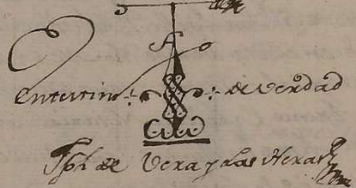 En testimo de Verdad
Jph de Vera y las Heras